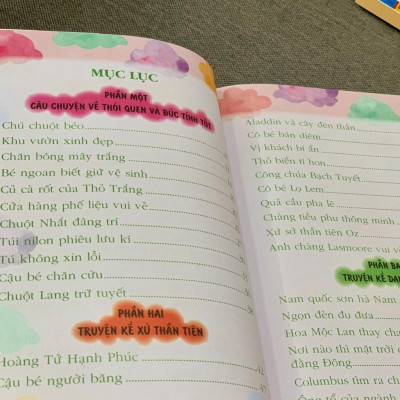 MỤC LỤC
PHẦN MỘT
CÂU CHUYỆN VỀ THÓI QUEN VÀ ĐỨC TÍNH TỐT
Chú chuột béo
Khu vườn xinh đẹp
Chăn bông mây trắng
Bé ngoan biết giữ vệ sinh
Củ cà rốt của Thỏ Trắng
Cửa hàng phế liệu vui vẻ
Chuột Nhất đãng trí
Túi nilon phiêu lưu kí
Tú không xin lỗi
Cậu bé chăn cừu
Chuột Lang trữ tuyết
PHẦN HAI
TRUYỆN KỂ XỨ THẦN TIÊN
Hoàng Tử Hạnh Phúc
Cậu bé người băng
Aladdin và cây đèn thần
Cô bé bán diêm
Vị khách bí ẩn
Thỏ biển tí hon
Công chúa Bạch Tuyết
Cô bé Lọ Lem
Quả cầu pha lê
Chàng tiều phu thông minh
Xứ sở thần tiên Oz
Anh chàng Lasmoore vui vẻ
PHẦN BA
TRUYỆN KỂ DA
Nam quốc sơn hà Nam
Ngọn đèn đu đưa
Hoa Mộc Lan thay cha
Nơi nào thì mặt trời
đằng Đông
Columbus tìm ra ch
Ông tổ của ngành